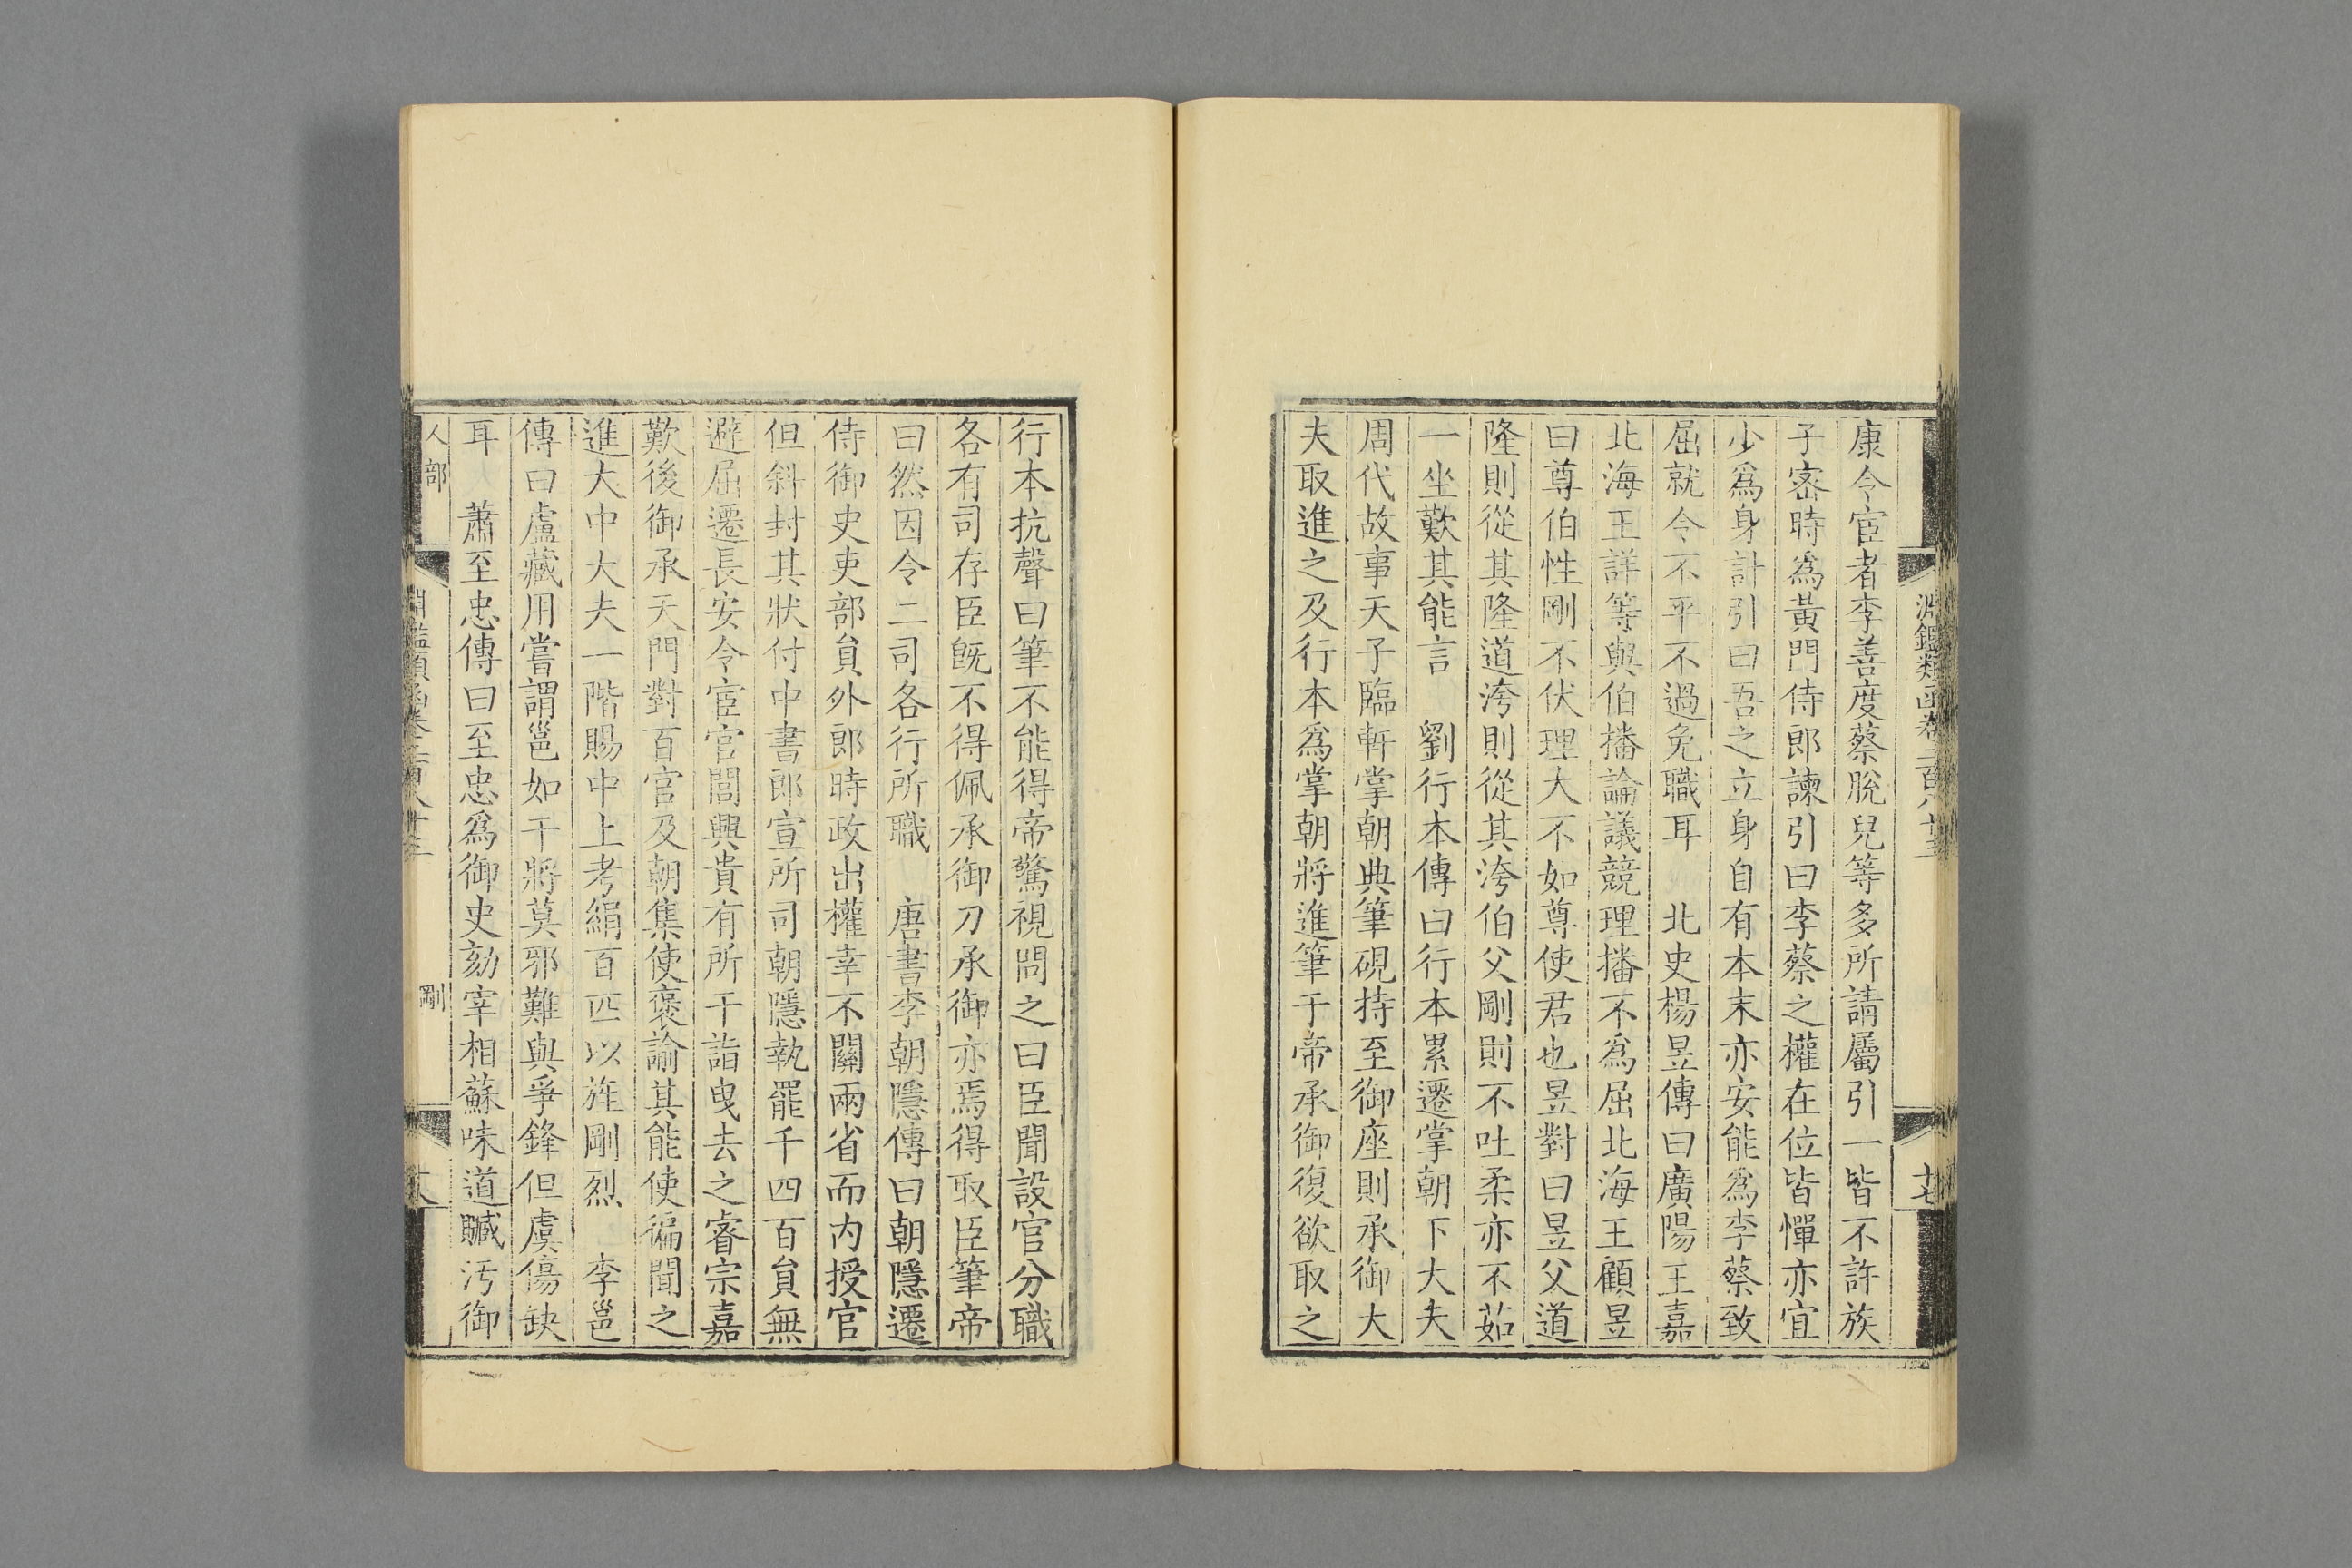 淵鑑類函卷二百八十三
十七
康令宦者李善度蔡脫兒等多所請屬引一皆不許族
子宻時爲黃門侍郎諫引曰李蔡之權在位皆憚亦宜
少爲身計引曰吾之立身自有本末亦安能爲李蔡致
屈就令不平不過免職耳　北史楊昱傳曰廣陽王嘉
北海王詳等與伯播論議競理播不爲屈北海王顧昱
曰尊伯性剛不伏理大不如尊使君也昱對曰昱父道
隆則從其隆道洿則從其洿伯父剛則不吐柔亦不茹
一坐歎其能言　劉行本傳曰行本累遷掌朝下大夫
周代故事天子臨軒掌朝典筆硯持至御座則承御大
夫取進之及行本爲掌朝將進筆于帝承御復欲取之
行本抗聲曰筆不能得帝驚視問之曰臣聞設官分職
各有司存臣旣不得佩承御刀承御亦焉得取臣筆帝
曰然因令二司各行所職　唐書李朝隱傳曰朝隱遷
侍御史吏部員外郎時政出權幸不關兩省而内授官
但斜封其狀付中書郎宣所司朝隱執罷千四百員無
避屈遷長安令宦官閭興貴有所干詣曳去之睿宗嘉
歎後御承天門對百官及朝集使褒諭其能使徧聞之
進大中大夫一階賜中上考絹百匹以旌剛烈　李邕
傳曰盧藏用嘗謂邕如干將莫邪難與爭鋒但虞傷缺
耳　蕭至忠傳曰至忠爲御史劾宰相蘇味道贓汚御
人部
剛